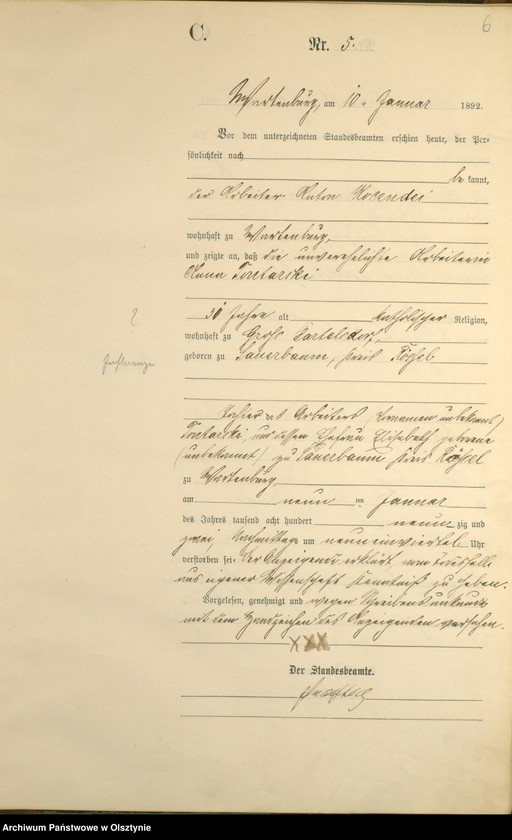 6
C.
Nr. 5.
Wartenburg, am 10. Januar 1892.
Vor dem unterzeichneten Standesbeamten erschien heute, der Per-
sönlichkeit nach
be kannt,
der Arbeiter Anton
wohnhaft zu Wartenburg,
und zeigte an, daß die unverehelichte Arbeiterin
Anna
30 Jahre alt katholischer Religion,
wohnhaft zu Groß Bartelsdorf,
geboren zu Sauerbaum, Kreis Rößel
Tochter des Arbeiters (Vornamen unbekannt)
und dessen Ehefrau Elisabeth geborene
(unbekannt) zu Sauerbaum Kreis Rößel
zu Wartenburg
am neun ten Januar
des Jahres tausend acht hundert neun zig und
zwei, Nachmittags um neuneinviertel Uhr
verstorben sei. Der Anzeigende erklärt, vom Todesfalle
aus eigener Wissenschaft Kenntniß zu haben.
Vorgelesen, genehmigt und wegen Schreibensunkunde
mit dem Handzeichen des Anzeigenden versehen.
XXX
Der Standesbeamte.
Archiwum Państwowe w Olsztynie